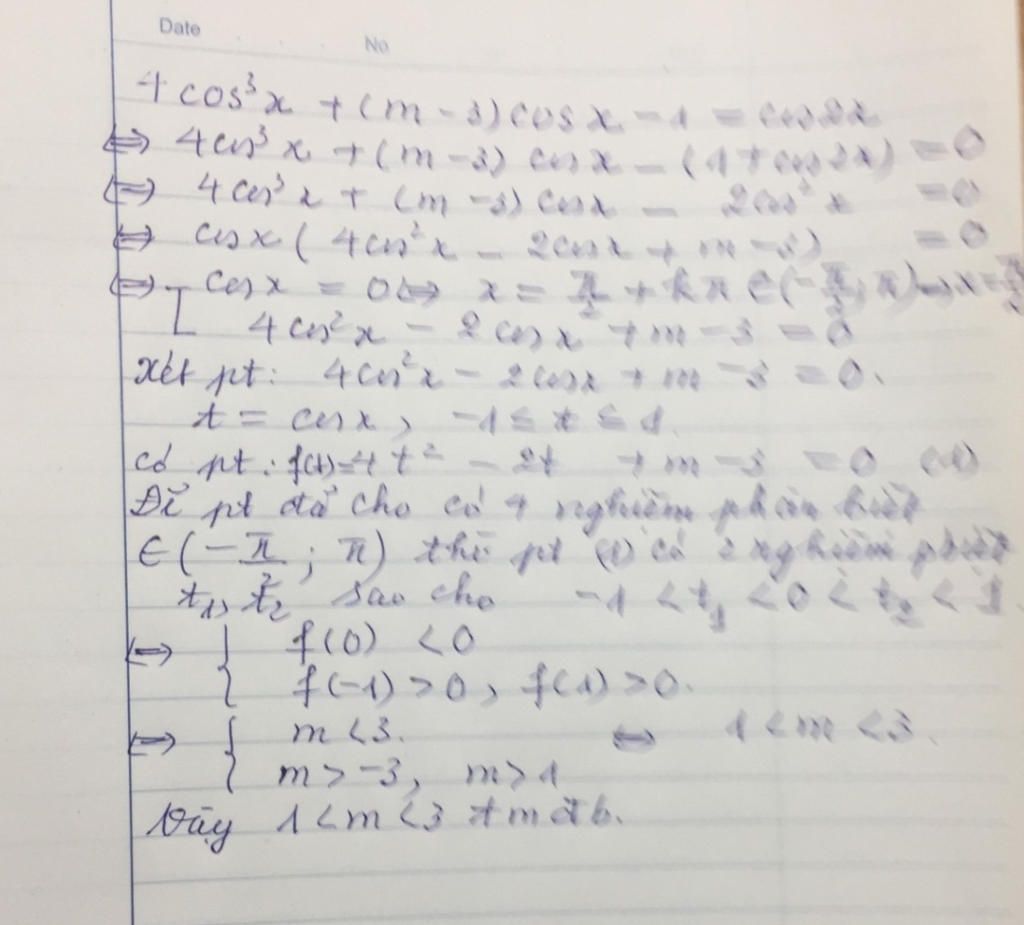 Date
No
4cos³x + (m-3)cosx - 1 = cos2x
⇔ 4cos³x + (m-3) cosx - (1+cos2x) = 0
⇔ 4cos³x + (m-3) cosx - 2cos²x = 0
⇔ cosx ( 4cos²x - 2cosx + m-3) = 0
⇔ [ cosx = 0 ⇔ x = π/2 + kπ ∈ (-π/2; π) ⇒ x = π/2
4cos²x - 2cosx + m - 3 = 0
Xét pt: 4cos²x - 2cosx + m - 3 = 0.
t = cosx, -1 ≤ t ≤ 1.
có pt: f(t)=4t² - 2t + m - 3 = 0 (1)
Để pt đã cho có 4 nghiệm phân biệt
∈ (-π/2; π) thì pt (1) có 2 nghiệm pbiệt
t₁, t₂ sao cho -1 < t₁ < 0 < t₂ < 1.
⇔ { f(0) < 0
f(-1) > 0, f(1) > 0.
⇔ { m < 3. ⇔ 1 < m < 3.
m > -3, m > 1
Vậy 1 < m < 3 t m đ b.